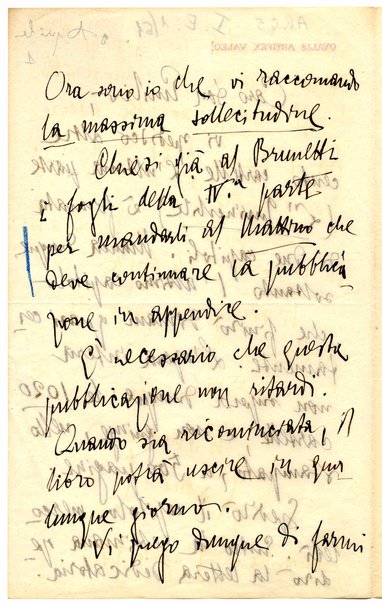 Ora sono io che vi raccomando
la massima sollecitudine.
Chiesi già al Brunetti
i fogli della IV.a parte
per mandarli al Mattino che
deve continuare la pubblica
zione in appendice.
È necessario che questa
pubblicazione non ritardi.
Quando sia ricominciata, il
libro potrà uscire in qua
lunque giorno.
Vi prego dunque di farmi